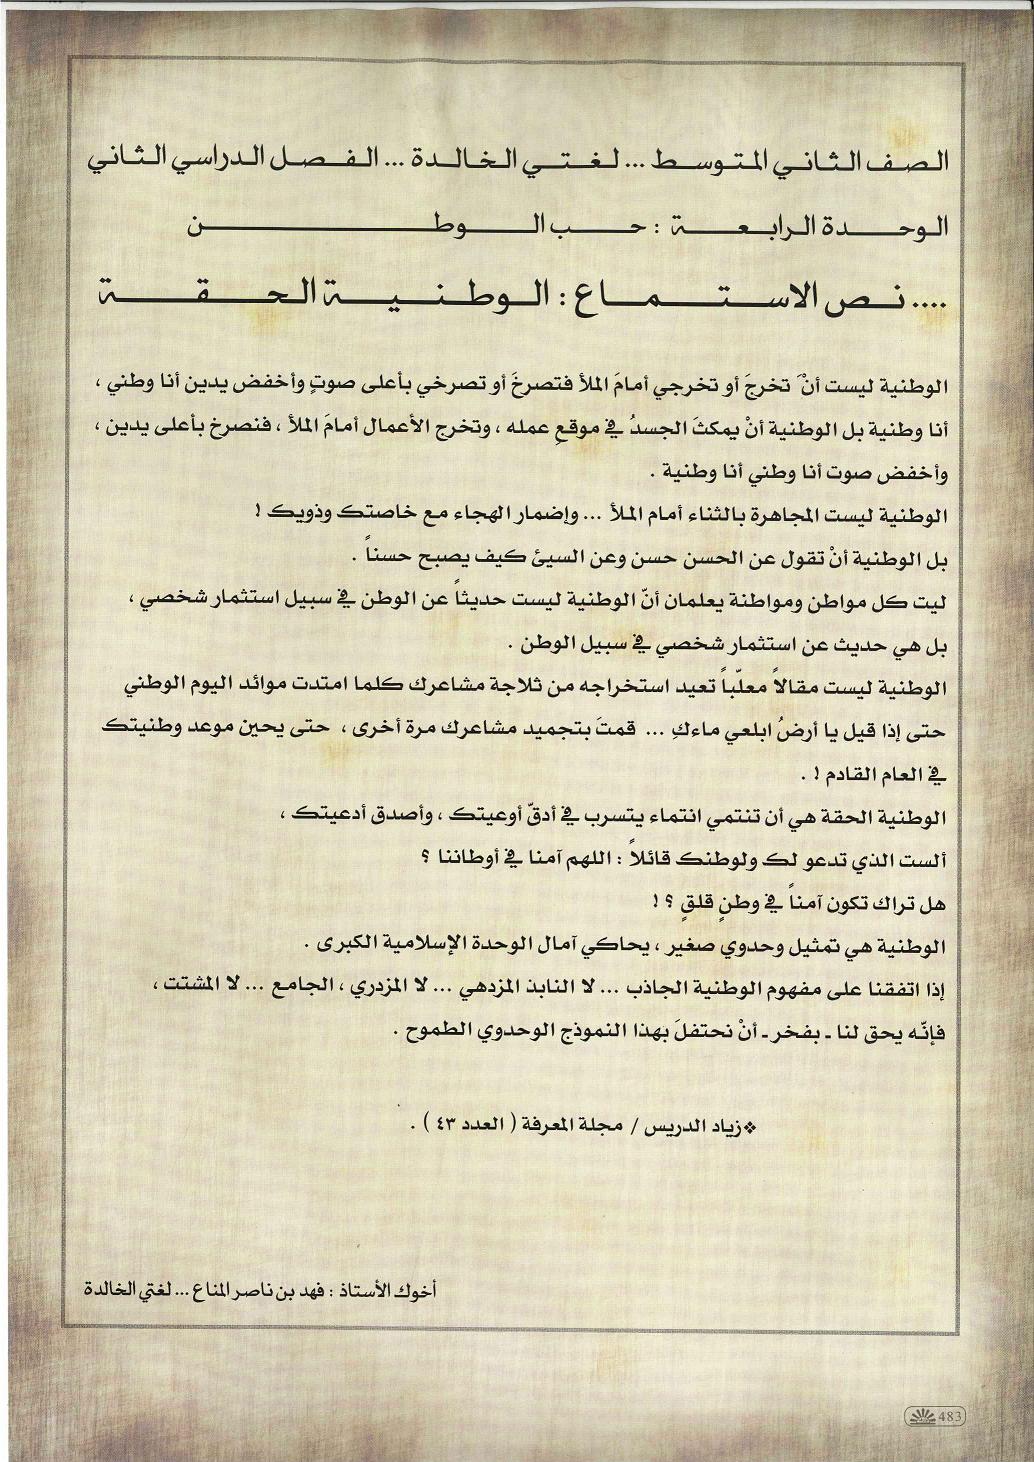 الصف الثاني المتوسط ... لغتي الخالدة ... الفصل الدراسي الثاني
الوحدة الرابعة : حب الوطن
.... نص الاستماع : الوطنية الحقة
الوطنية ليست أنْ تخرجَ أو تخرجي أمامَ الملأ فتصرخَ أو تصرخي بأعلى صوتٍ وأخفض يدين أنا وطني ،
أنا وطنية بل الوطنية أنْ يمكثَ الجسدُ في موقعِ عمله ، وتخرج الأعمال أمامَ الملأ ، فنصرخ بأعلى يدين ،
وأخفض صوت أنا وطني أنا وطنية .
الوطنية ليست المجاهرة بالثناء أمام الملأ ... وإضمار الهجاء مع خاصتك وذويك !
بل الوطنية أنْ تقول عن الحسن حسن وعن السيئ كيف يصبح حسناً .
ليت كل مواطن ومواطنة يعلمان أنّ الوطنية ليست حديثاً عن الوطن في سبيل استثمار شخصي ،
بل هي حديث عن استثمار شخصي في سبيل الوطن .
الوطنية ليست مقالاً معلّباً تعيد استخراجه من ثلاجة مشاعرك كلما امتدت موائد اليوم الوطني
حتى إذا قيل يا أرضُ ابلعي ماءكِ ... قمتَ بتجميد مشاعرك مرة أخرى ، حتى يحين موعد وطنيتك
في العام القادم ! .
الوطنية الحقة هي أن تنتمي انتماء يتسرب في أدقّ أوعيتك ، وأصدق أدعيتك ،
ألست الذي تدعو لك ولوطنك قائلاً : اللهم آمنا في أوطاننا ؟
هل تراك تكون آمناً في وطنٍ قلقٍ ؟ !
الوطنية هي تمثيل وحدوي صغير ، يحاكي آمال الوحدة الإسلامية الكبرى .
إذا اتفقنا على مفهوم الوطنية الجاذب ... لا النابذ المزدهي ... لا المزدري ، الجامع ... لا المشتت ،
فإنّه يحق لنا ـ بفخر ـ أنْ نحتفلَ بهذا النموذج الوحدوي الطموح .
❖زياد الدريس / مجلة المعرفة ( العدد ٤٣ ) .
أخوك الأستاذ : فهد بن ناصر المناع ... لغتي الخالدة
483